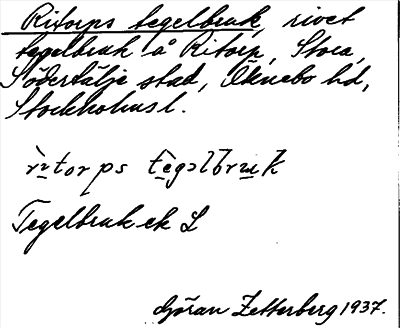 Ritorps tegelbruk, rivet
tegelbruk å Ritorp, Stora,
Södertälje stad, Öknebo hd,
Stockholms l.
Tegelbruk ek L
Göran Zetterberg 1937.